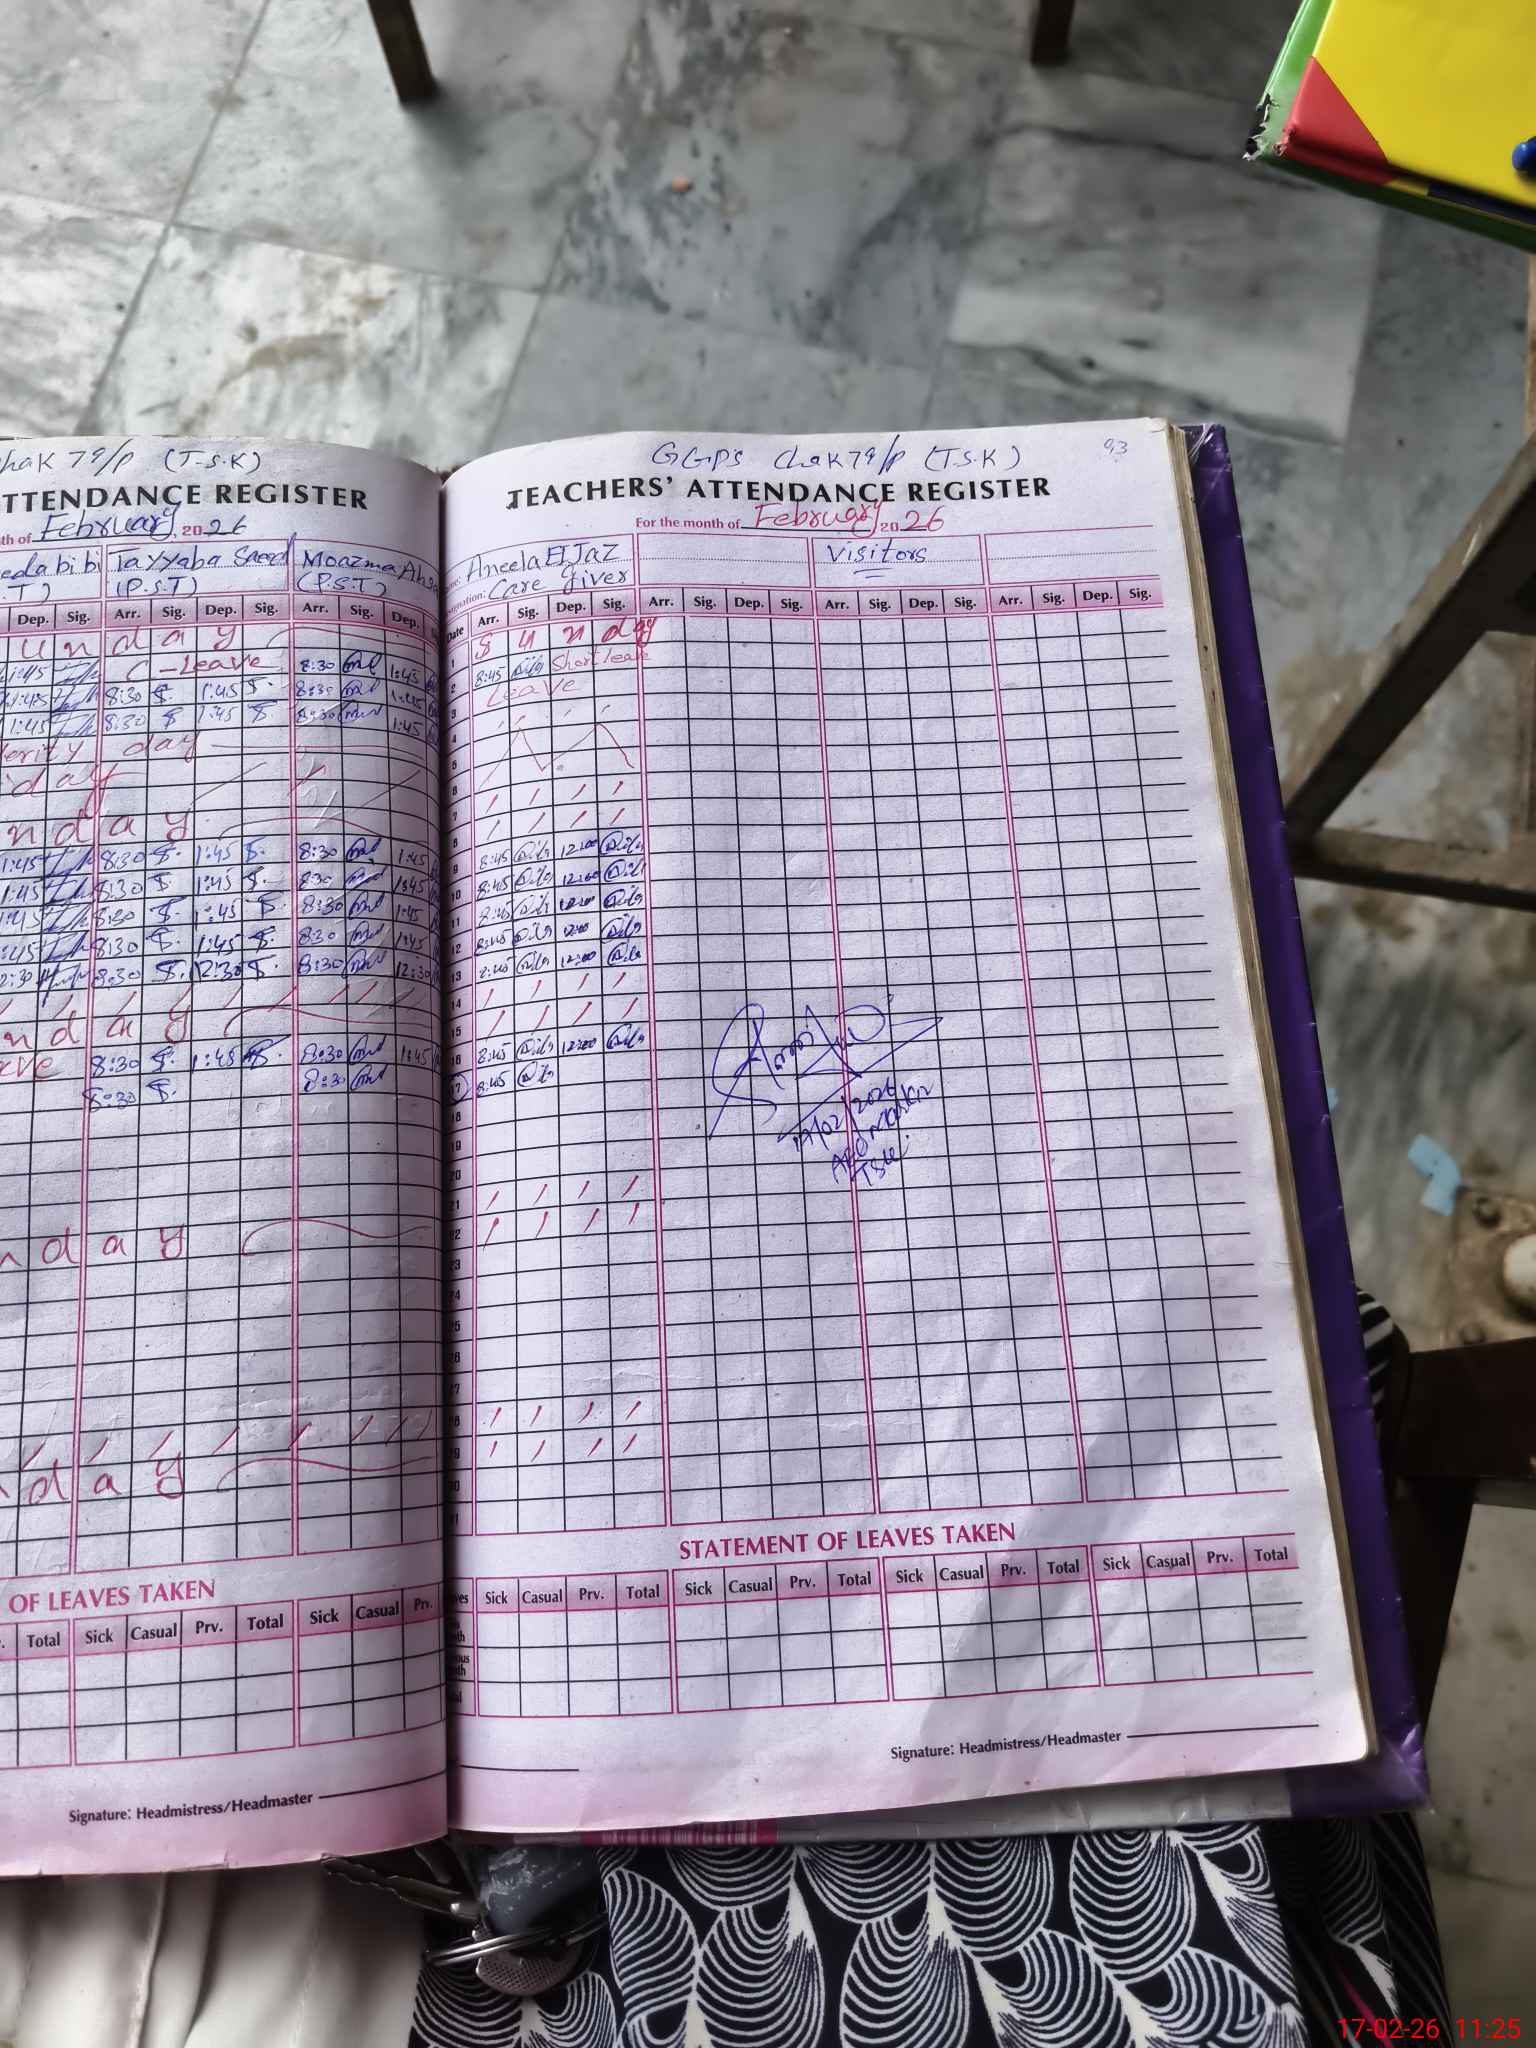 chak 79/P (T.S.K)
TTENDANCE REGISTER
th of February 2026
bibi Tayyaba Saeed Moazma
(P.S.T) (P.S.T)
Dep. Sig. Arr. Sig. Dep. Sig. Arr. Sig. Dep.
u n d a y
1:45 C-Leave 8:30 1:45
1:45 8:30 1:45 8:30 1:45
1:45 8:30 1:45 8:30 1:45
day
day
n d a y
1:45 8:30 1:45 8:30 1:45
1:45 8:30 1:45 8:30 1:45
1:45 8:30 1:45 8:30 1:45
1:45 8:30 1:45 8:30 1:45
2:30 8:30 12:30 8:30 12:30
n d a y
ave 8:30 1:45 8:30 1:45
8:30 8:30
n d a y
d a y
OF LEAVES TAKEN
Total Sick Casual Prv. Total Sick Casual Prv.
Signature: Headmistress/Headmaster
GGPS Chak 79/P (T.S.K) 93
TEACHERS' ATTENDANCE REGISTER
For the month of February 2026
Aneela EIJaz Visitors
Care giver
Date Arr. Sig. Dep. Sig. Arr. Sig. Dep. Sig. Arr. Sig. Dep. Sig. Arr. Sig. Dep. Sig.
1 S u n day
2 8:45 Short leave
3 Leave
4
5
6
7
8
9 8:45 12:00
10 8:45 12:00
11 8:45 12:00
12 8:45 12:00
13 8:45 12:00
14
15
16 8:45 12:00
17 8:45
18
19
20
21
22
23
24
25
26
27
28
29
30
31
17/02/2026
AEO Markaz
TSK
STATEMENT OF LEAVES TAKEN
Sick Casual Prv. Total Sick Casual Prv. Total Sick Casual Prv. Total Sick Casual Prv. Total
Signature: Headmistress/Headmaster
17-02-26 11:25